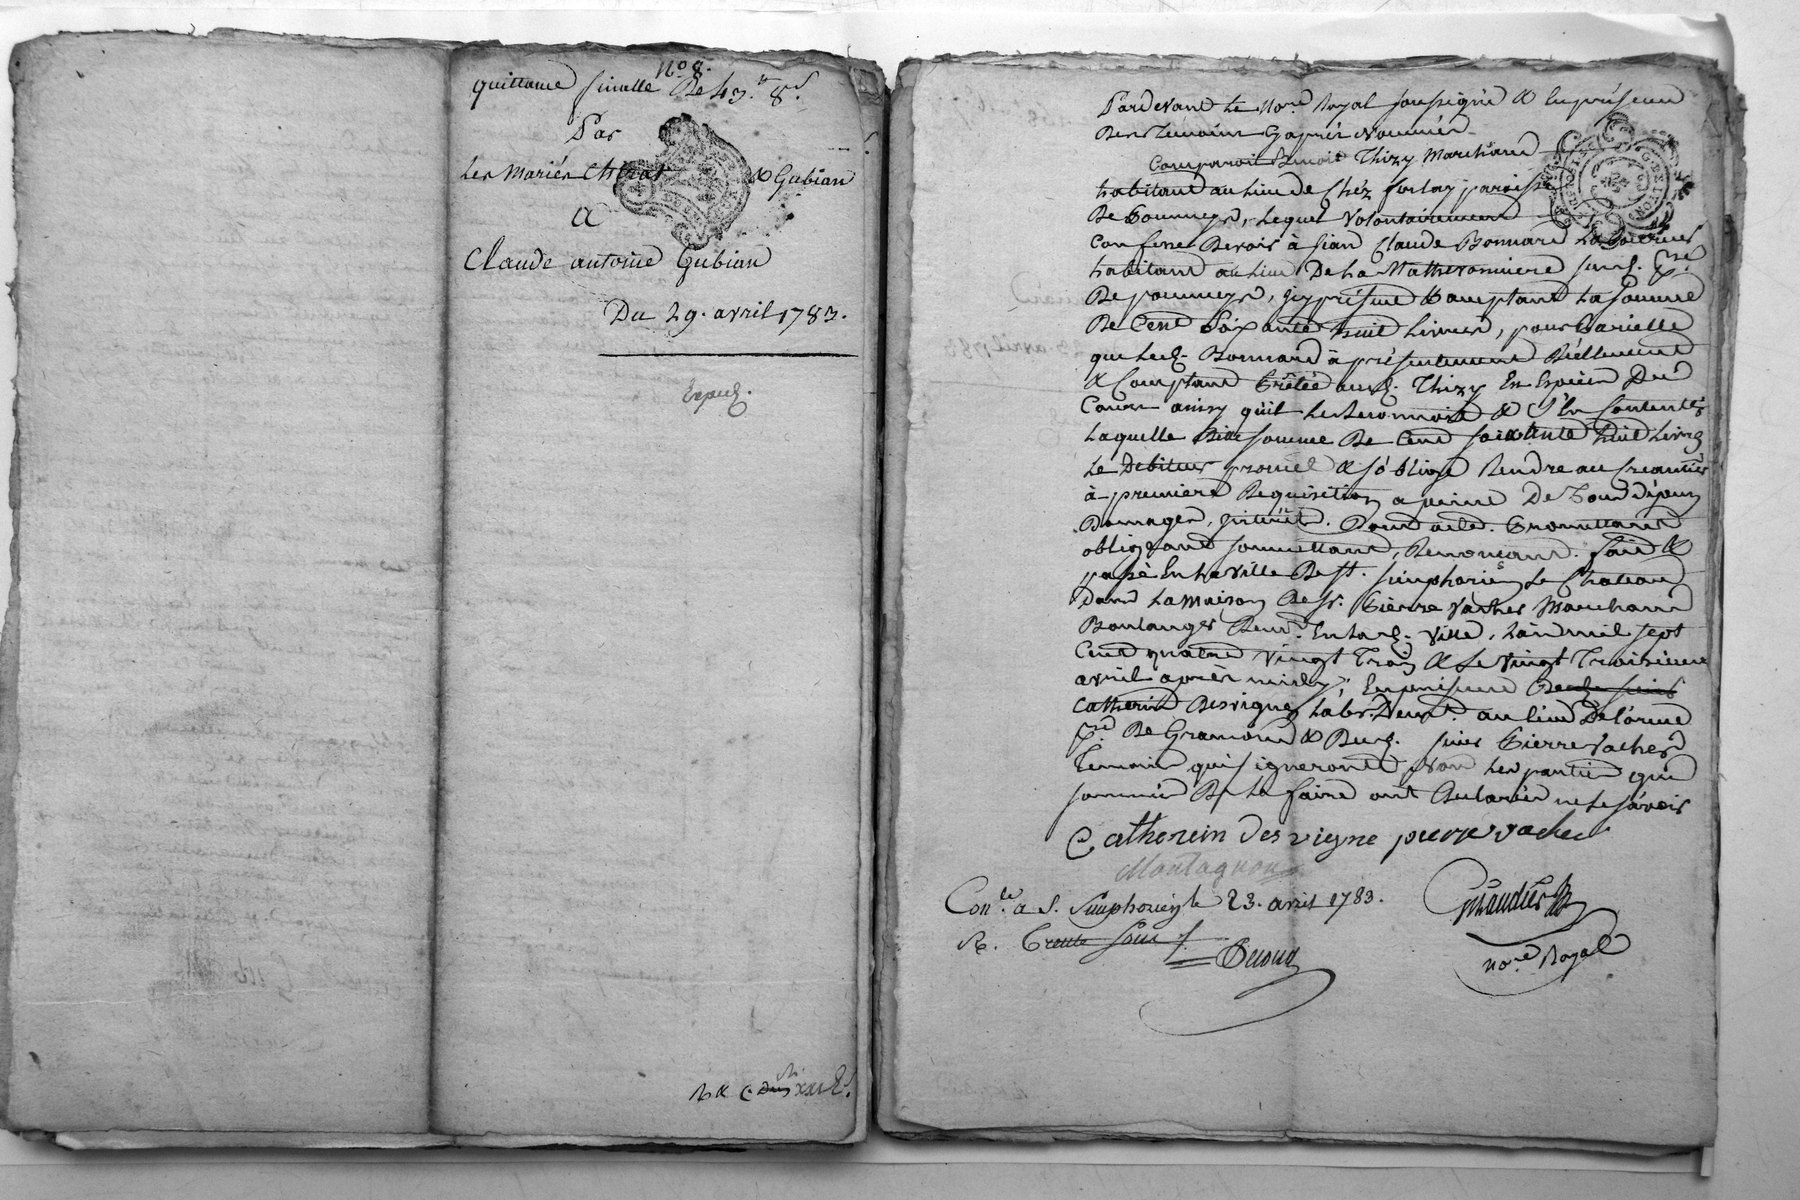 N.o 8.
quittance finalle De 43.lt 8.s
Par
Les Mariés Chirat & Gubian
A
Claude antoine Gubian
Du 29. avril 1783.
Expéd.
Pardevant le No.re Royal soussigné & En présence
Des Témoins Cy après Nommés
Comparoit Benoit Thizy Marchand
habitant au Lieu de Chéz forlay paroisse
De Pommeys, Lequel Volontairement
Confesse Devoir à Jean Claude Bonnard Laboureur
habitant au Lieu De La Matheronniere susd. P.sse
De pommeys, Icy présent & acceptant La somme
De Cent Soixante huit Livres, pour Pareille
que Led. Bonnard à présentement Réellement
& Comptant Prêtée aud. Thizy En Espèces Du
Cours ainsy qu'il Le Reconnoit & s'En Contente
Laquelle Ditte somme De Cent soixante huit Livres
Le Debiteur promet & s'oblige Rendre au Creancier
à première Requisition a peine De Tous Dépens
Domages, Intérêts. Dont acte. Promettant
obligeant soumettant, Renonçant. fait &
passé En La Ville De St. Simphorien Le Chateau
Dans La Maison De Sr. Pierre Vacher Marchand
Boulanger Demt. En Lad. Ville, L'an mil sept
Cent quatre Vingt Trois & Le Vingt Troisieme
avril après midy, En présence De
Catherin Desvigne Labr. Demt. au Lieu De L'orme
P.sse De Gramond & Dud. sieur Pierre Vacher
Temoins qui signeront Non Les parties qui
sommées De Le faire ont Déclarées ne Le sávoir
Catherin des vigne pierre vacher
Montagnon
Con.lé a S. Simphorien le 23. avril 1783.
R. Trente sous
No.re Royal